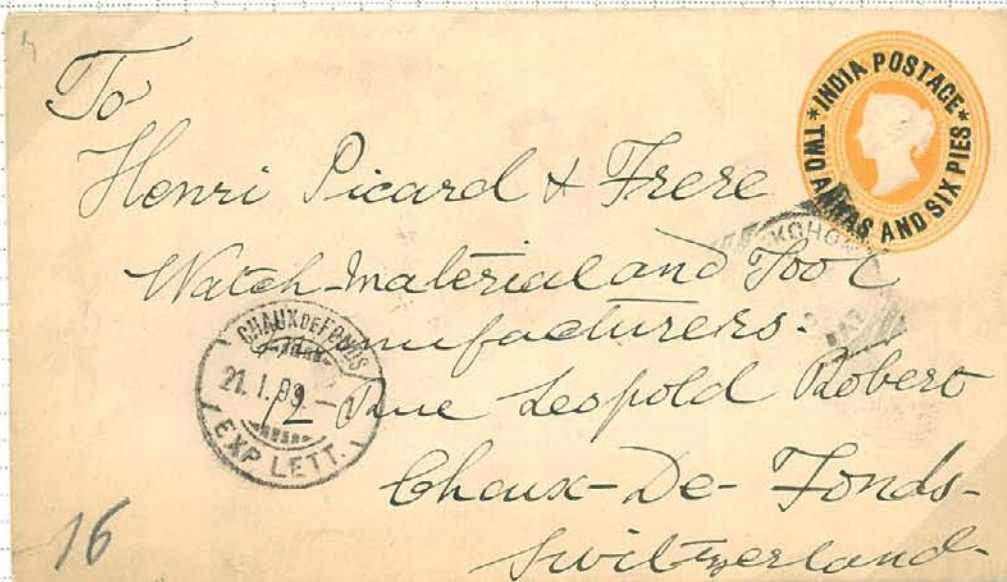 To
Henri Picard & Frere
Watch-material and Tool
manufacturers.
12 Rue Leopold Robert
Chaux-De-Fonds-
Switzerland-
16
* INDIA POSTAGE *
TWO ANNAS AND SIX PIES
CHAUX DE FONDS
21. I. 99 –
EXP. LETT.